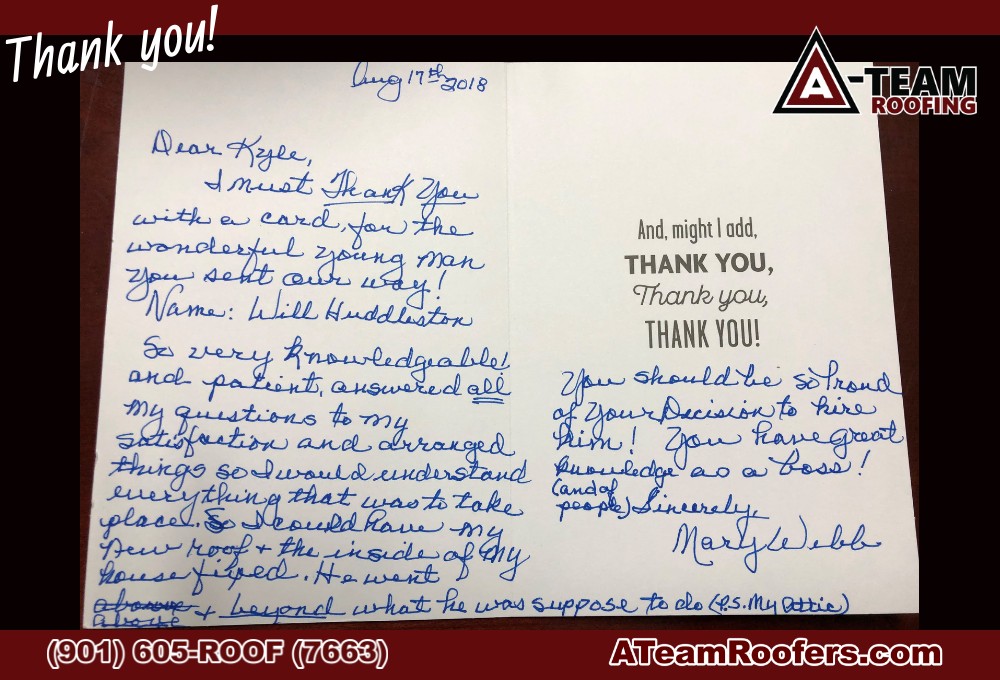 Thank you!
A-TEAM
ROOFING
Aug 17th 2018
Dear Kyle,
I must Thank You
with a card, for the
wonderful young man
you sent our way!
Name: Will Huddleston
So very knowledgeable!
and patient, answered all
my questions to my
satisfaction and arranged
things so I would understand
everything that was to take
place. So I could have my
new roof + the inside of my
house fixed. He went
above
above + beyond what he was suppose to do (P.S. My Attic)
And, might I add,
THANK YOU,
Thank you,
THANK YOU!
You should be so Proud
of Your Decision to hire
him! You have great
knowledge as a boss!
(and of
people) Sincerely,
Mary Webb
(901) 605-ROOF (7663)
ATeamRoofers.com